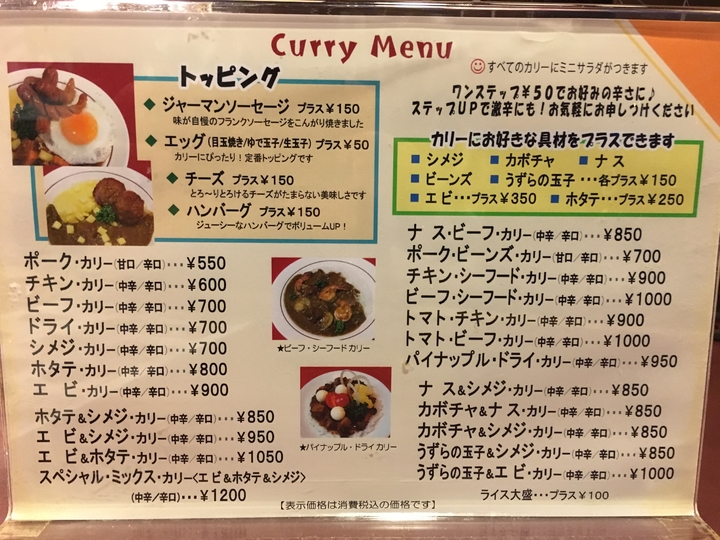 Curry Menu
トッピング
◆ ジャーマンソーセージ プラス¥150
味が自慢のフランクソーセージをこんがり焼きました
◆ エッグ(目玉焼き/ゆで玉子/生玉子) プラス¥50
カリーにぴったり!定番トッピングです
◆ チーズ プラス¥150
とろ〜りとろけるチーズがたまらない美味しさです
◆ ハンバーグ プラス¥150
ジューシーなハンバーグでボリュームUP!
すべてのカリーにミニサラダがつきます
ワンステップ¥50でお好みの辛さに♪
ステップUPで激辛にも!お気軽にお申しつけください
カリーにお好きな具材をプラスできます
■ シメジ ■ カボチャ ■ ナス
■ ビーンズ ■ うずらの玉子 …各プラス¥150
■ エビ…プラス¥350 ■ ホタテ…プラス¥250
ポーク・カリー(甘口/辛口)…¥550
チキン・カリー(中辛/辛口)…¥600
ビーフ・カリー(中辛/辛口)…¥700
ドライ・カリー(中辛/辛口)…¥700
シメジ・カリー(中辛/辛口)…¥700
ホタテ・カリー(中辛/辛口)…¥800
エビ・カリー(中辛/辛口)…¥900
ホタテ&シメジ・カリー(中辛/辛口)…¥850
エビ&シメジ・カリー(中辛/辛口)…¥950
エビ&ホタテ・カリー(中辛/辛口)…¥1050
スペシャル・ミックス・カリー<エビ&ホタテ&シメジ>
(中辛/辛口)…¥1200
★ビーフ・シーフードカリー
★パイナップル・ドライカリー
ナス・ビーフ・カリー(中辛/辛口)…¥850
ポーク・ビーンズ・カリー(甘口/辛口)…¥700
チキン・シーフード・カリー(中辛/辛口)…¥900
ビーフ・シーフード・カリー(中辛/辛口)…¥1000
トマト・チキン・カリー(中辛/辛口)…¥900
トマト・ビーフ・カリー(中辛/辛口)…¥1000
パイナップル・ドライ・カリー(中辛/辛口)…¥950
ナス&シメジ・カリー(中辛/辛口)…¥850
カボチャ&ナス・カリー(中辛/辛口)…¥850
カボチャ&シメジ・カリー(中辛/辛口)…¥850
うずらの玉子&シメジ・カリー(中辛/辛口)…¥850
うずらの玉子&エビ・カリー(中辛/辛口)…¥1000
ライス大盛…プラス¥100
【表示価格は消費税込の価格です】